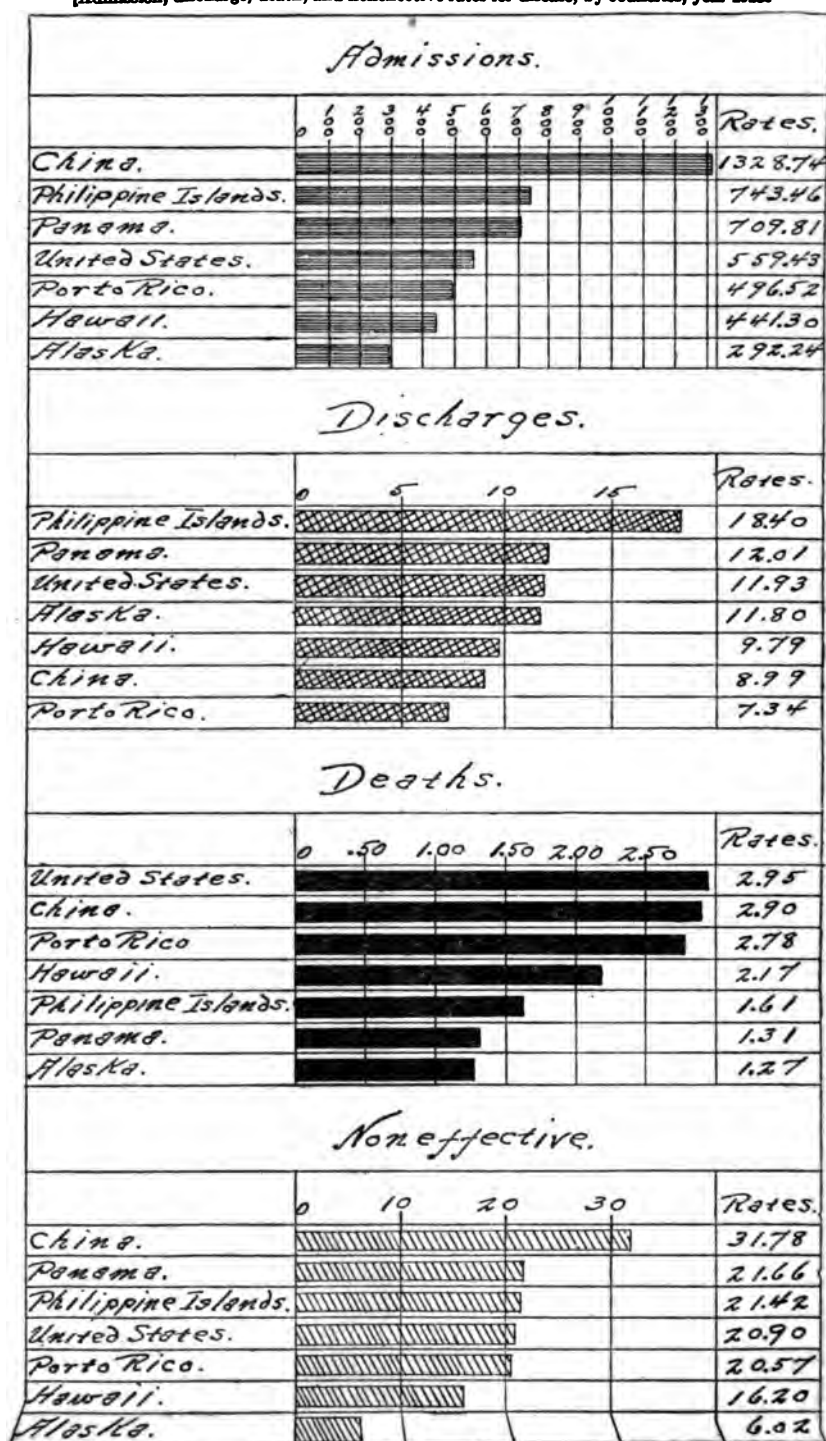 Admissions.
0 100 200 300 400 500 600 700 800 900 1000 1100 1200 1300 Rates.
China. 1328.74
Philippine Islands. 743.46
Panama. 709.81
United States. 559.43
Porto Rico. 496.52
Hawaii. 441.30
Alaska. 292.24
Discharges.
0 5 10 15 Rates.
Philippine Islands. 18.40
Panama. 12.01
United States. 11.93
Alaska. 11.80
Hawaii. 9.79
China. 8.99
Porto Rico. 7.34
Deaths.
0 .50 1.00 1.50 2.00 2.50 Rates.
United States. 2.95
China. 2.90
Porto Rico 2.78
Hawaii. 2.17
Philippine Islands. 1.61
Panama. 1.31
Alaska. 1.27
Noneffective.
0 10 20 30 Rates.
China. 31.78
Panama. 21.66
Philippine Islands. 21.42
United States. 20.90
Porto Rico. 20.57
Hawaii. 16.20
Alaska. 6.02